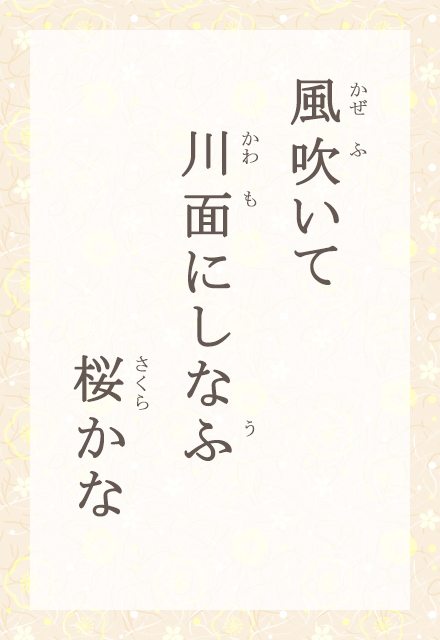 風吹いて
かぜ ふ
川面にしなふ
かわ も う
桜かな
さくら